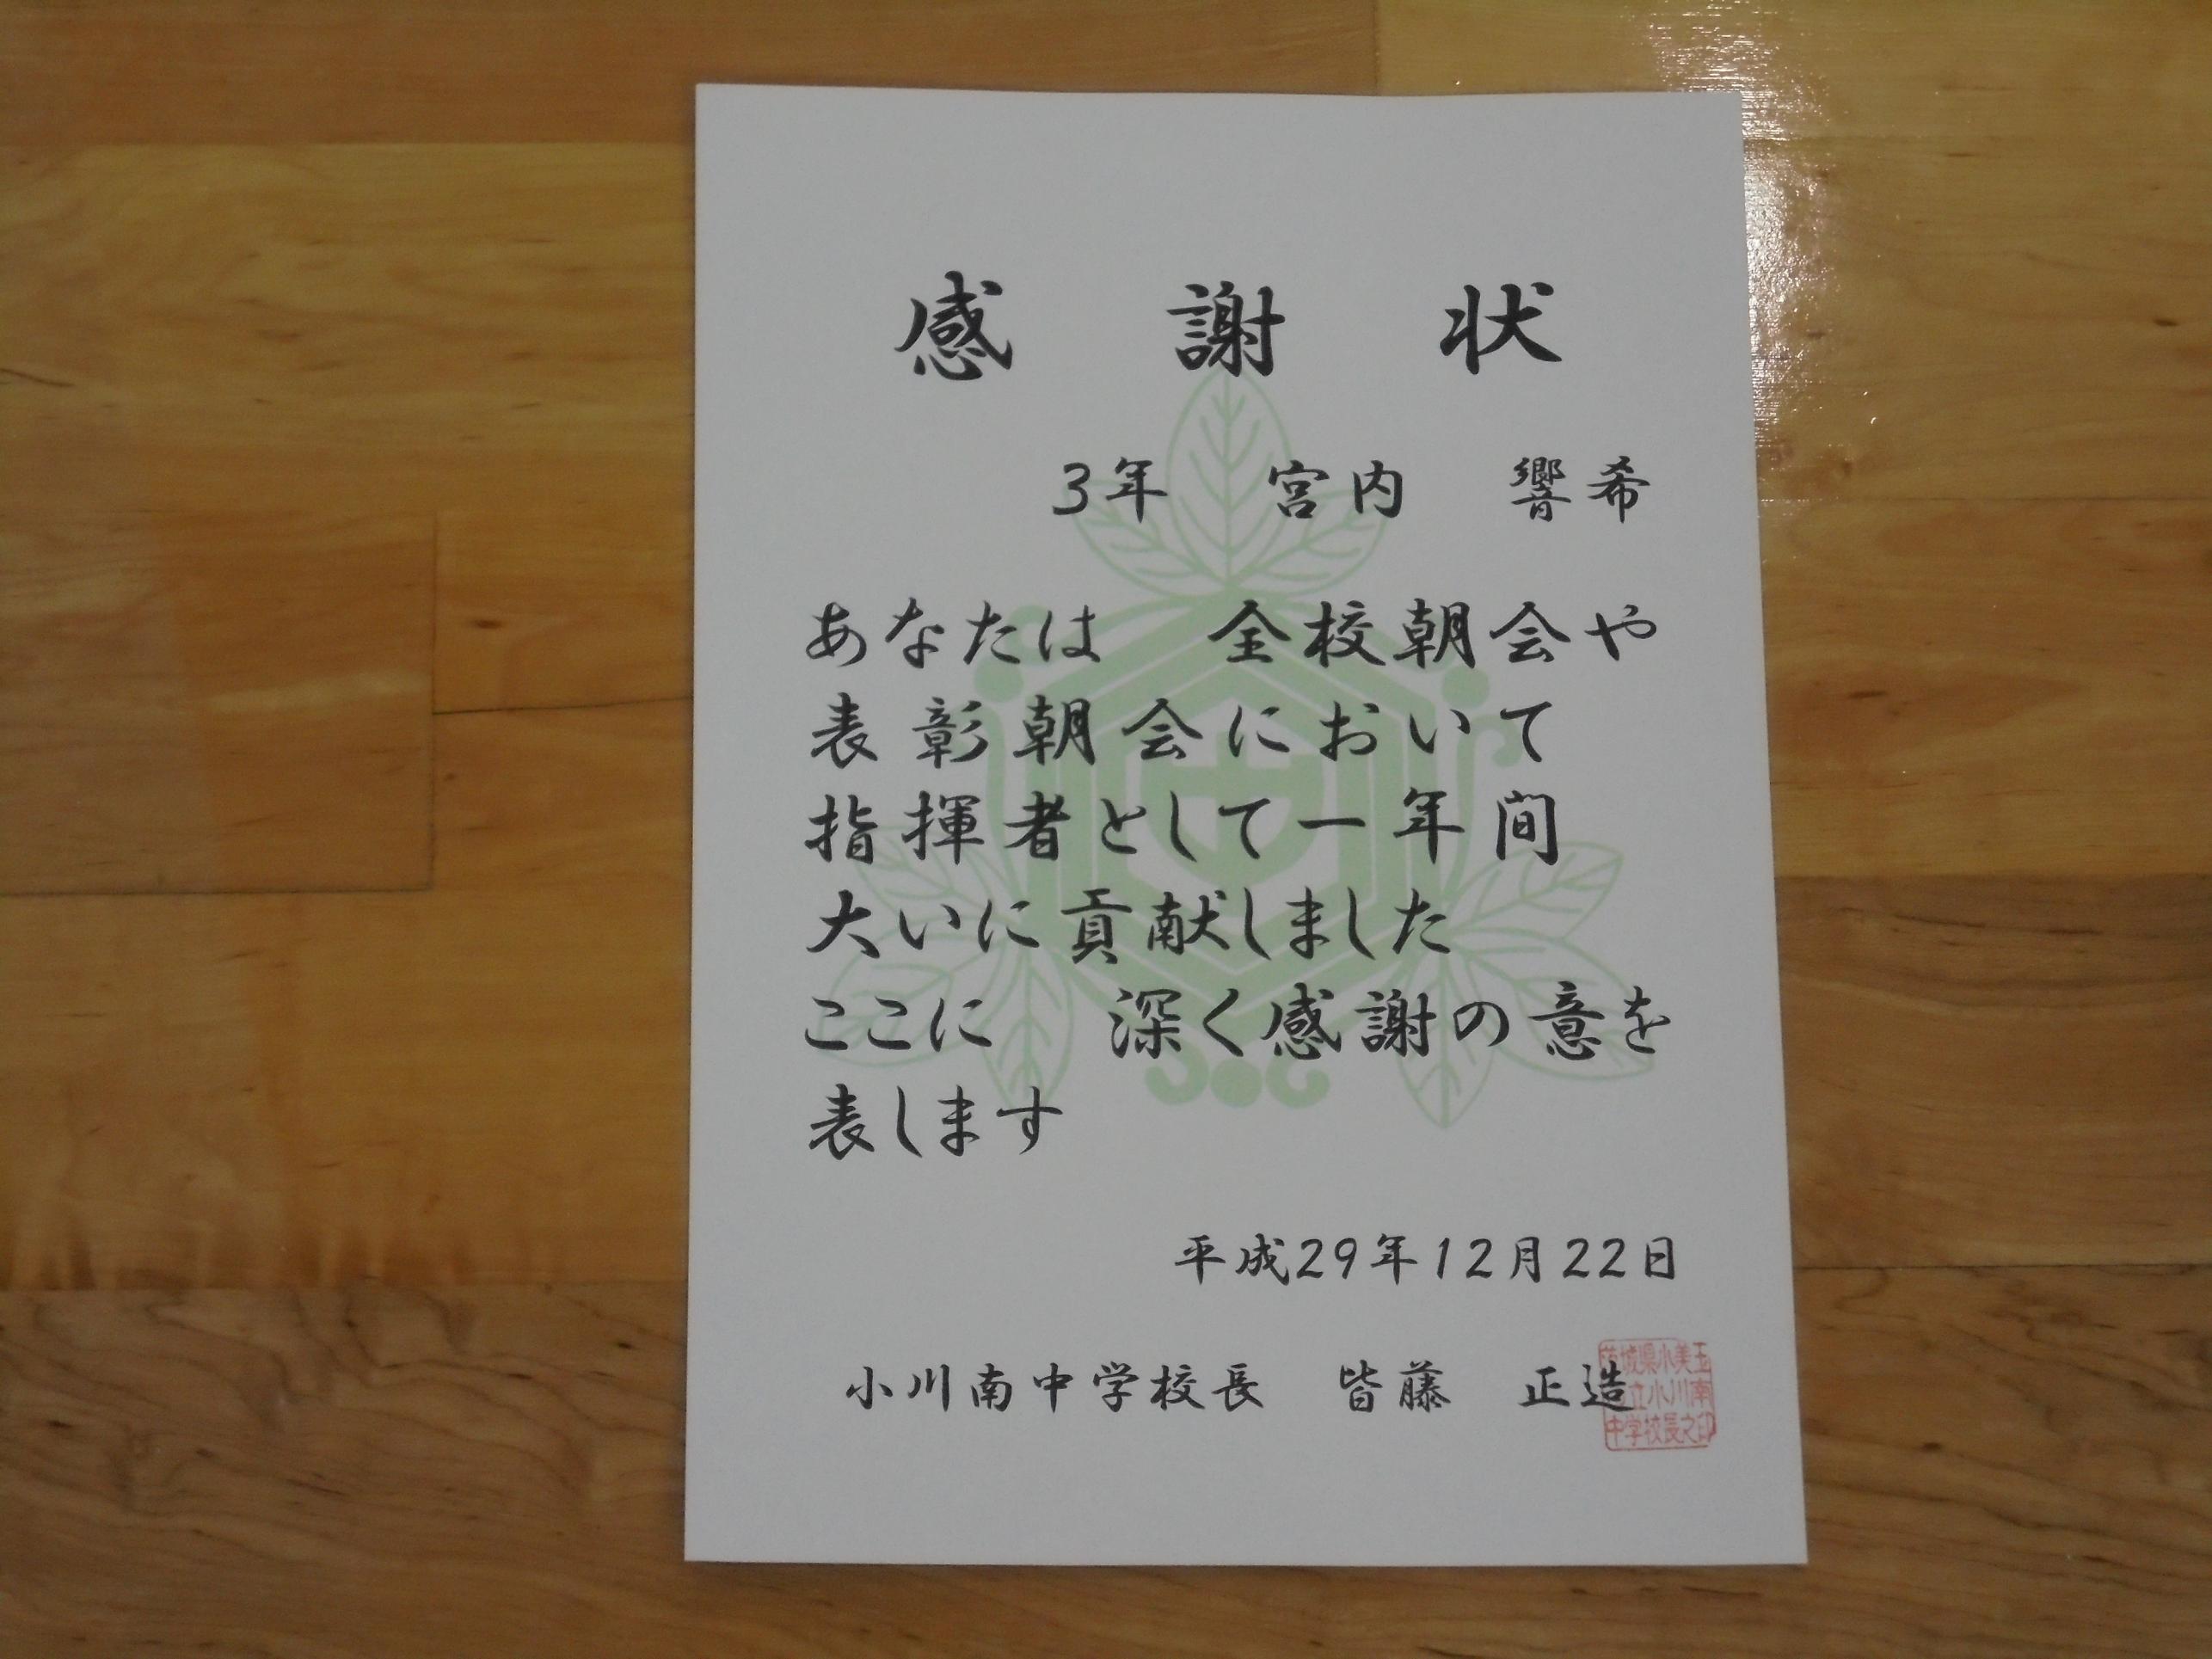 感謝状
3年 宮内 響希
あなたは 全校朝会や
表彰朝会において
指揮者として一年間
大いに貢献しました
ここに 深く感謝の意を
表します
平成29年12月22日
小川南中学校長 皆藤 正造
茨城県小美玉
市立小川南
中学校長之印